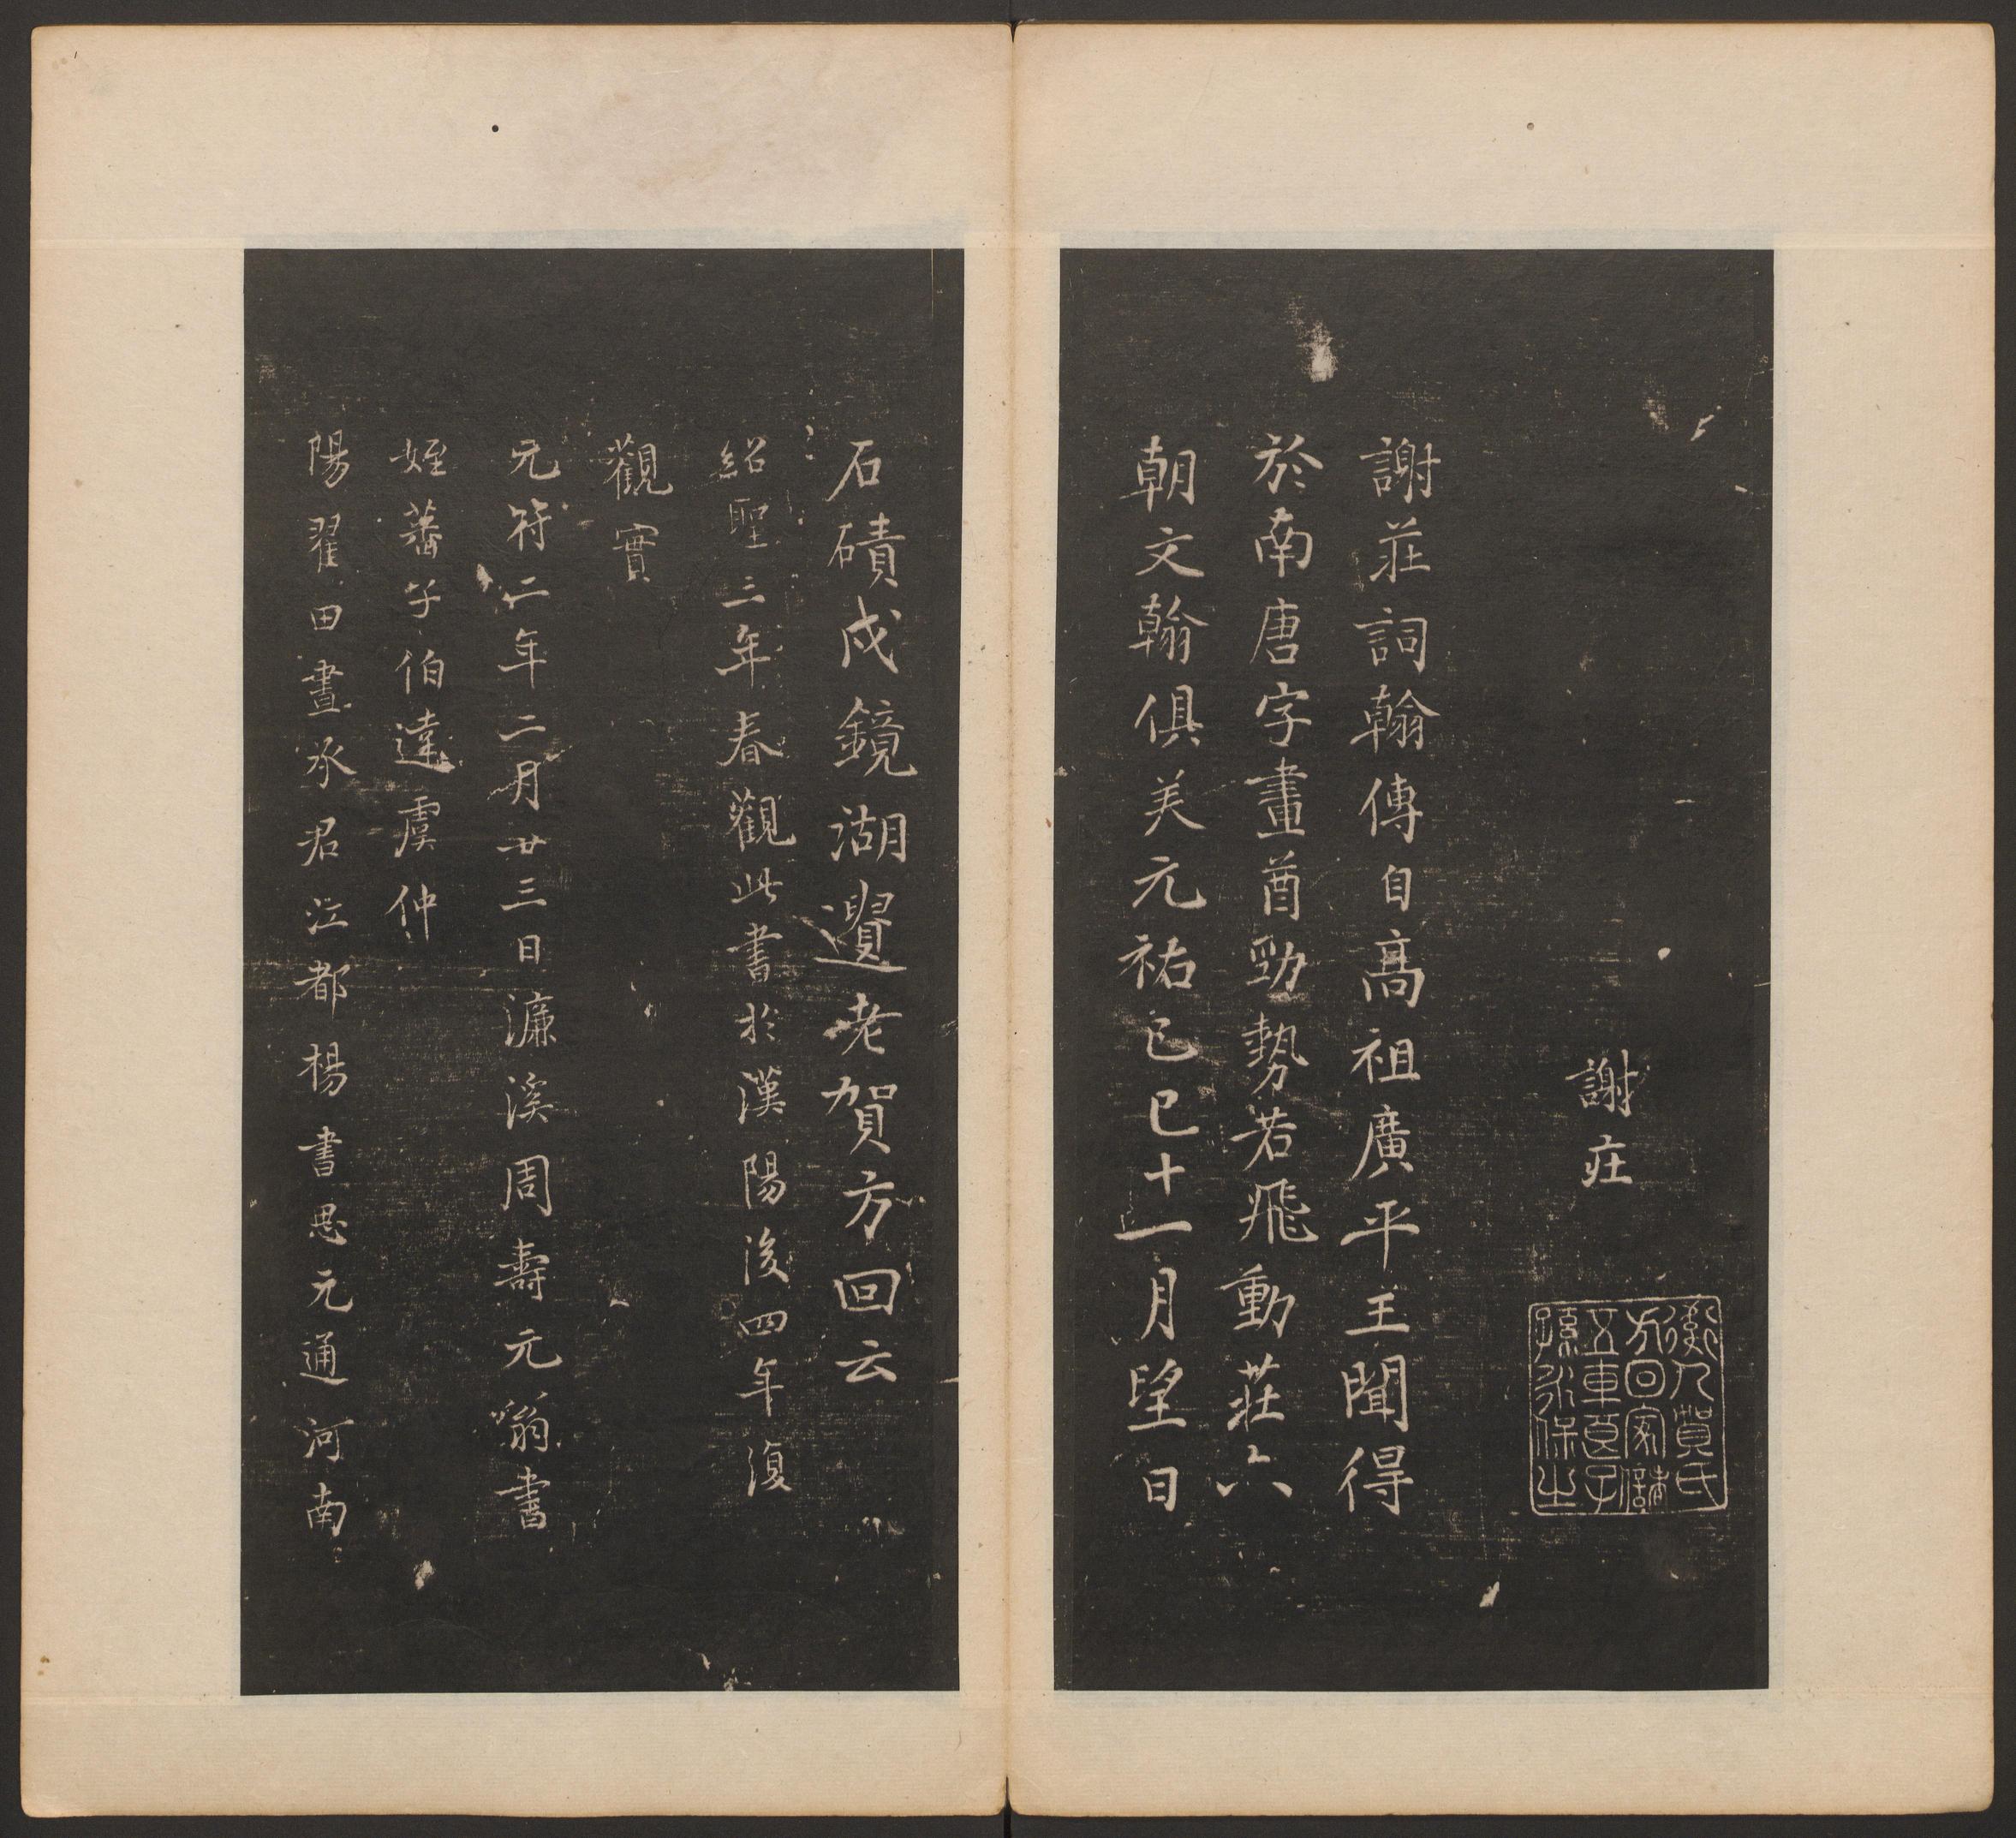 謝莊
衡人賀氏
方回家藏
五車遺子
孫永保之
謝莊詞翰傳自高祖廣平王聞得
於南唐字畫酋勁勢若飛動莊六
朝文翰俱美元祐己巳十一月望日
石磧戍鏡湖遺老賀方回云
紹聖三年春觀此書於漢陽後四年復
觀實
元符二年二月廿三日濂溪周壽元翁書
姪蕃子伯達虞仲
陽翟田晝承君江都楊書思元通河南